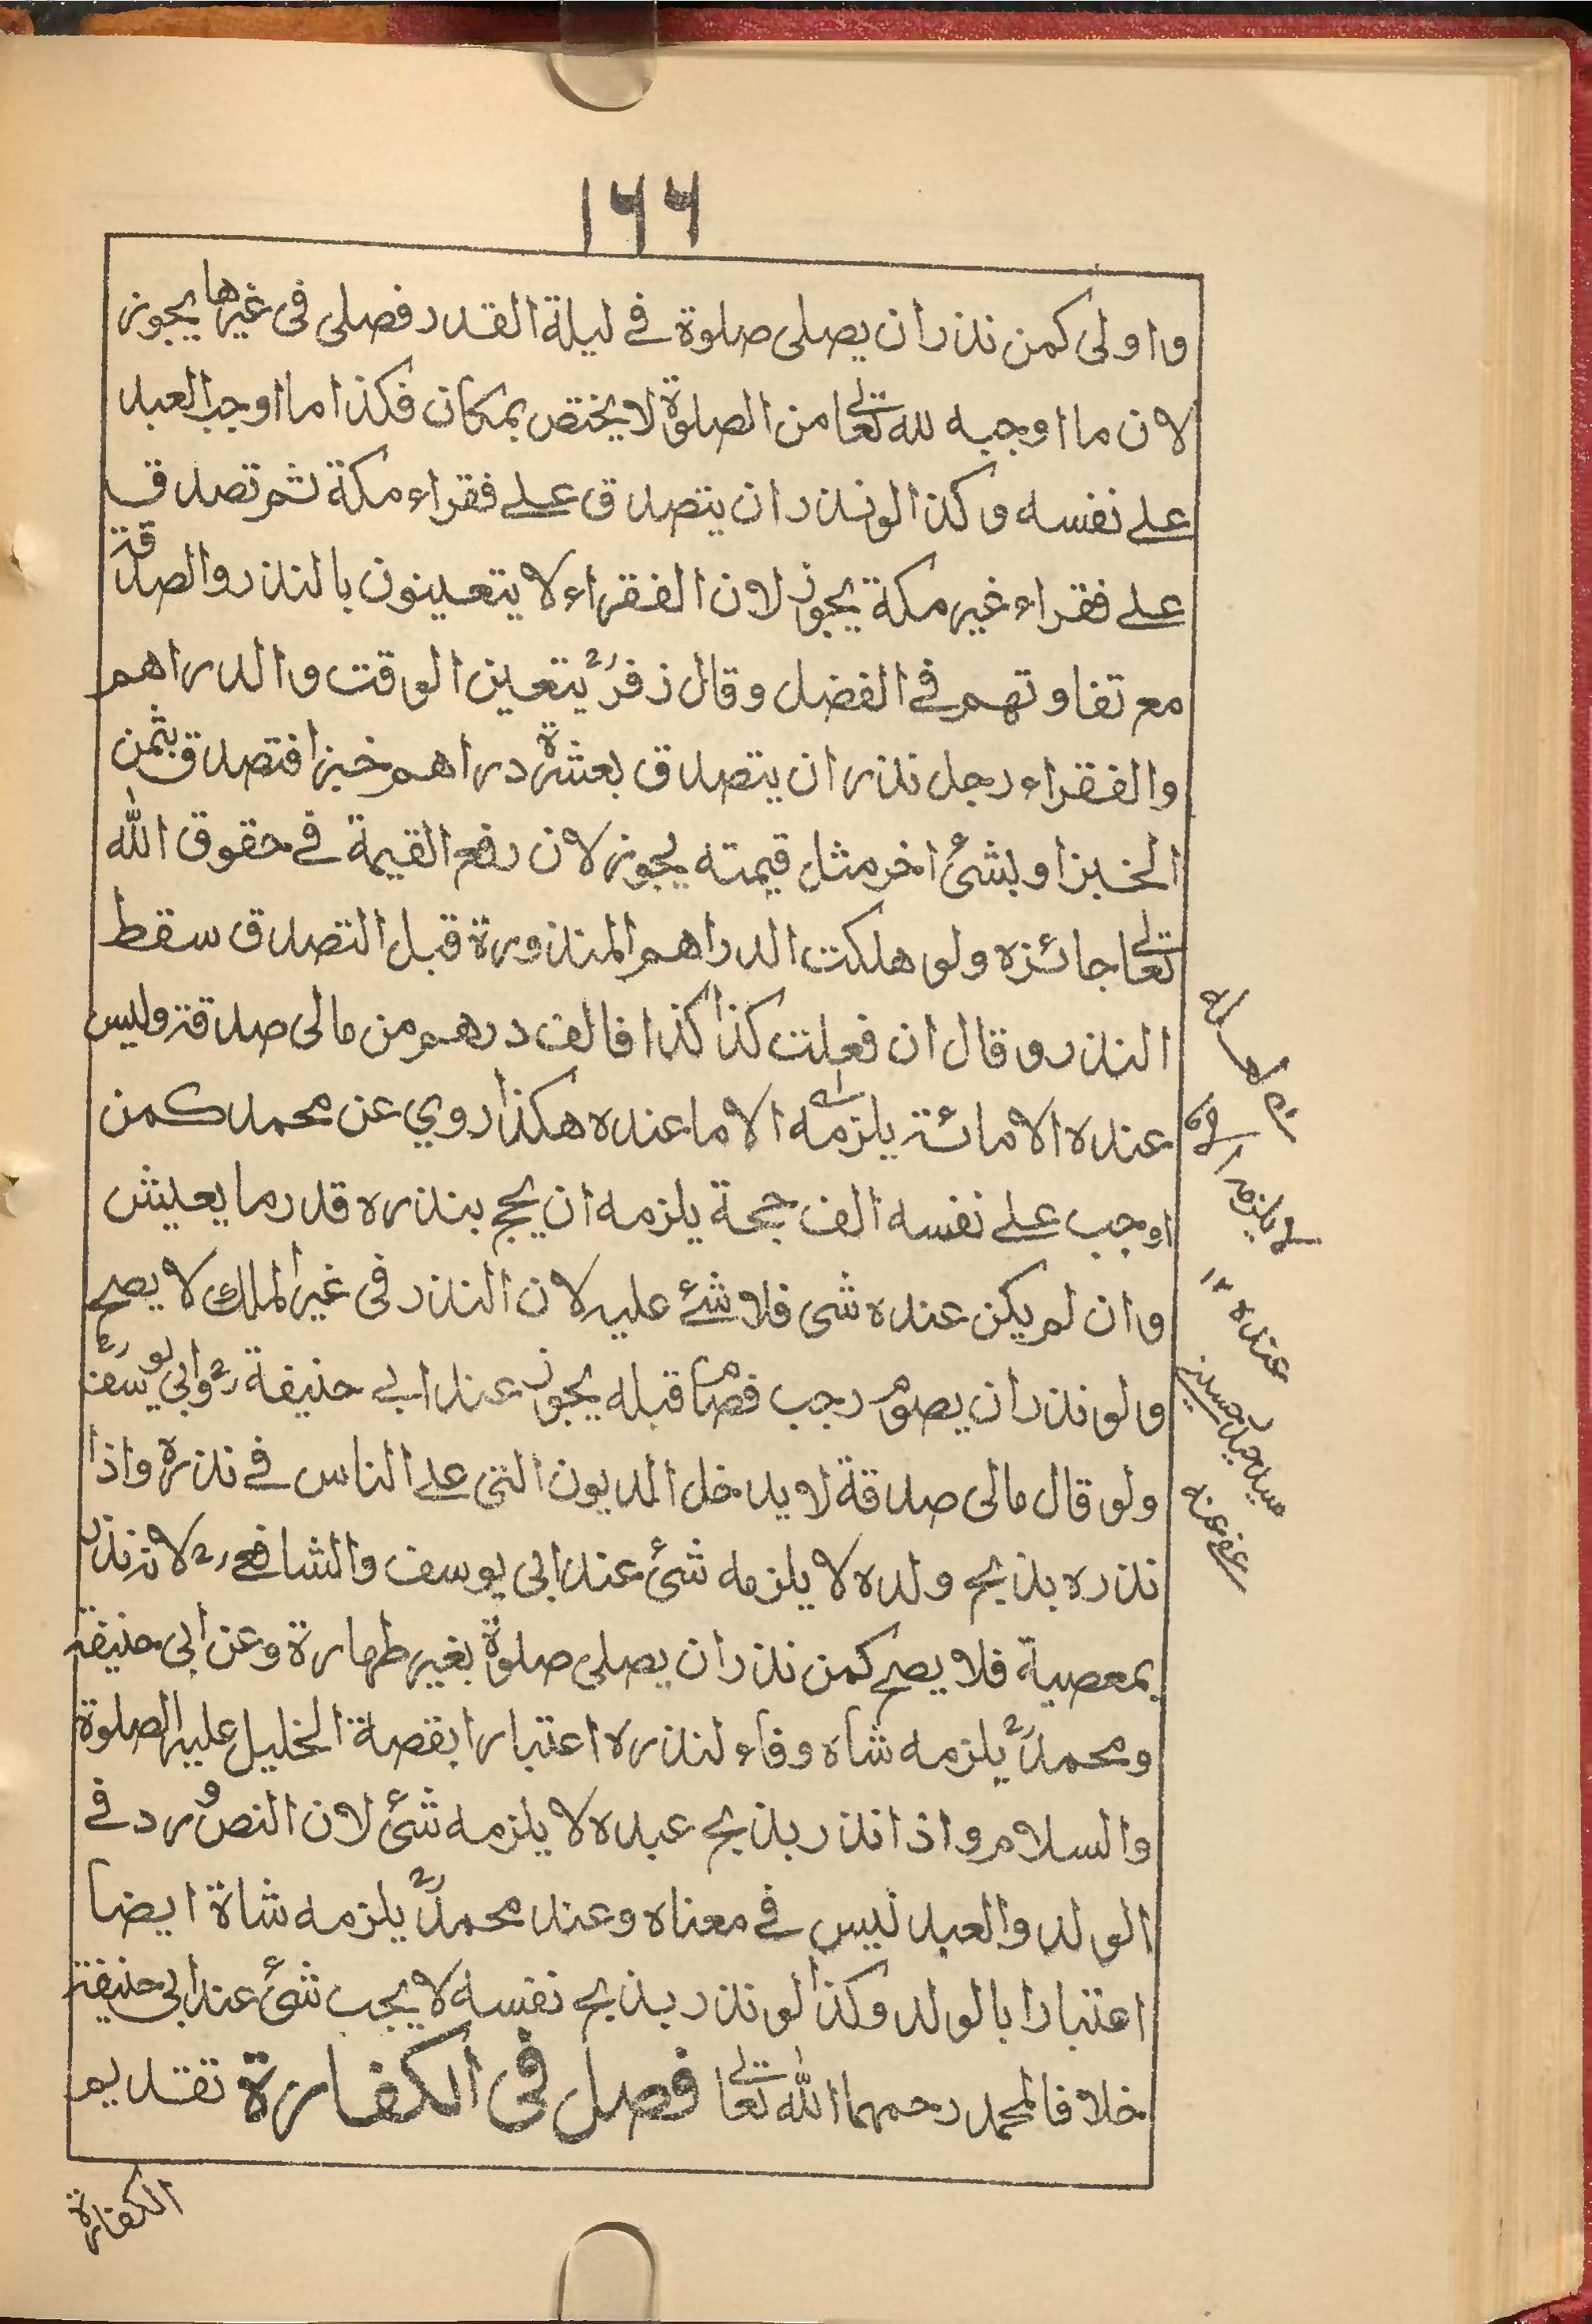 ١٦٦
واولى كمن نذر ان يصلى صلوة في ليلة القدر فصلى فى غيرها يجوز
لان ما اوجبه لله تعالى من الصلوة لا يختص بمكان فكذا ما اوجب العبد
على نفسه وكذا لو نذر ان يتصدق على فقراء مكة ثم تصدق
على فقراء غير مكة يجوز لان الفقراء لا يتعينون بالنذر والصدقة
مع تفاوتهم في الفضل وقال زفرؒ يتعين الوقت والدراهم
والفقراء رجل نذر ان يتصدق بعشرة دراهم خبزا فتصدق بثمن
الخبز او بشئ اخر مثل قيمته يجوز لان دفع القيمة في حقوق الله
تعالى جائزه ولو هلكت الدراهم المنذورة قبل التصدق سقط
النذر وقال ان فعلت كذا كذا فالف درهم من مالى صدقة وليس
عنده الا مائة يلزمه الا ما عنده هكذا روي عن محمد كمن
اوجب على نفسه الف حجة يلزمه ان يحج بنذره قدر ما يعيش
وان لم يكن عنده شى فلا شئ عليه لان النذر فى غير الملك لا يصح
ولو نذر ان يصوم رجب فصام قبله يجوز عند ابي حنيفة رح وابي يوسف رح
ولو قال مالى صدقة لا يدخل المديون التى على الناس في نذره واذا
نذره بذبح ولده لا يلزمه شئ عند ابى يوسف والشافعي رح لانه نذر
بمعصية فلا يصح كمن نذر ان يصلى صلوة بغير طهارة وعن ابى حنيفة
ومحمدؒ يلزمه شاه وفاء لنذره اعتبارا بقصة الخليل عليه الصلوة
والسلام واذا نذر بذبح عبده لا يلزمه شئ لان النص ورد في
الولد والعبد ليس في معناه وعند محمدؒ يلزمه شاة ايضا
اعتبارا بالولد وكذا لو نذر بذبح نفسه لا يجب شئ عند ابى حنيفة
خلافا لمحمد رحمهما الله تعالى فصل فى الكفارة تقديم
الكفارة
يلزمه
عنده ١٢
عفى عنه